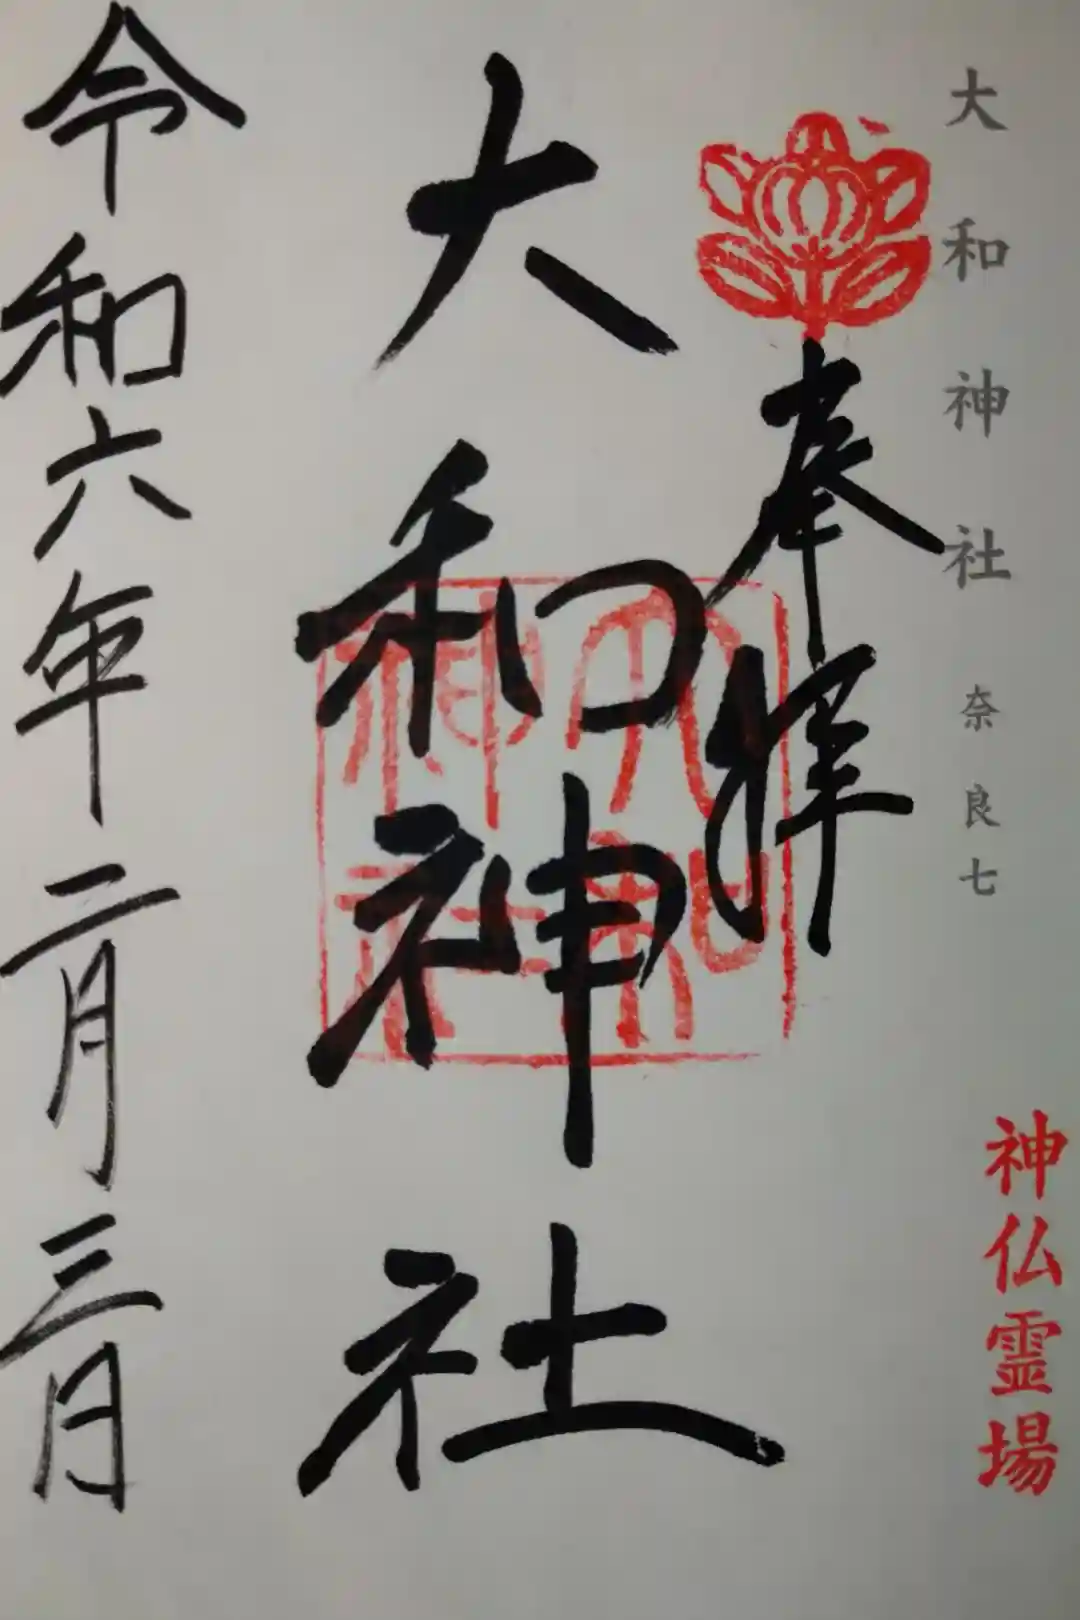 大和神社 奈良七
神仏霊場
奉拝
大和神社
大和神社
令和六年二月三月